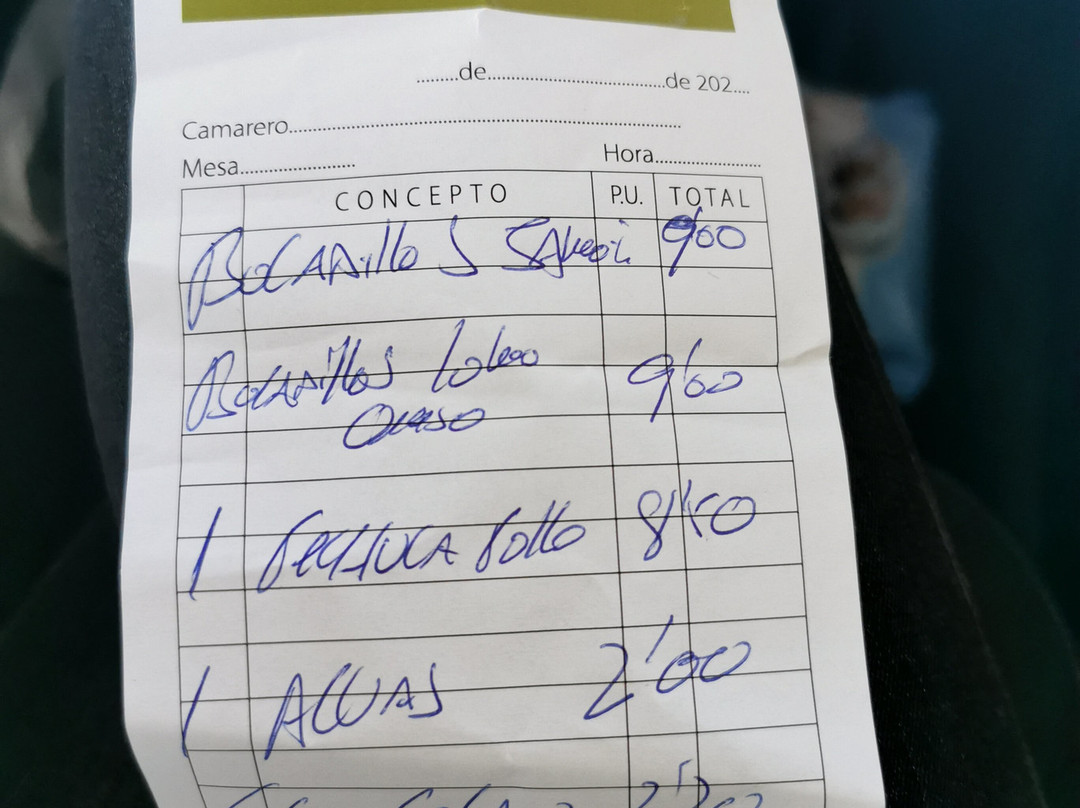 de de 202
Camarero
Mesa Hora
CONCEPTO P.U. TOTAL
BOCADILLO S 9'60
BOCADILLOS lomo 9'60
QUESO
1 PECHUGA POLLO 8'50
1 AGUAS 2'00